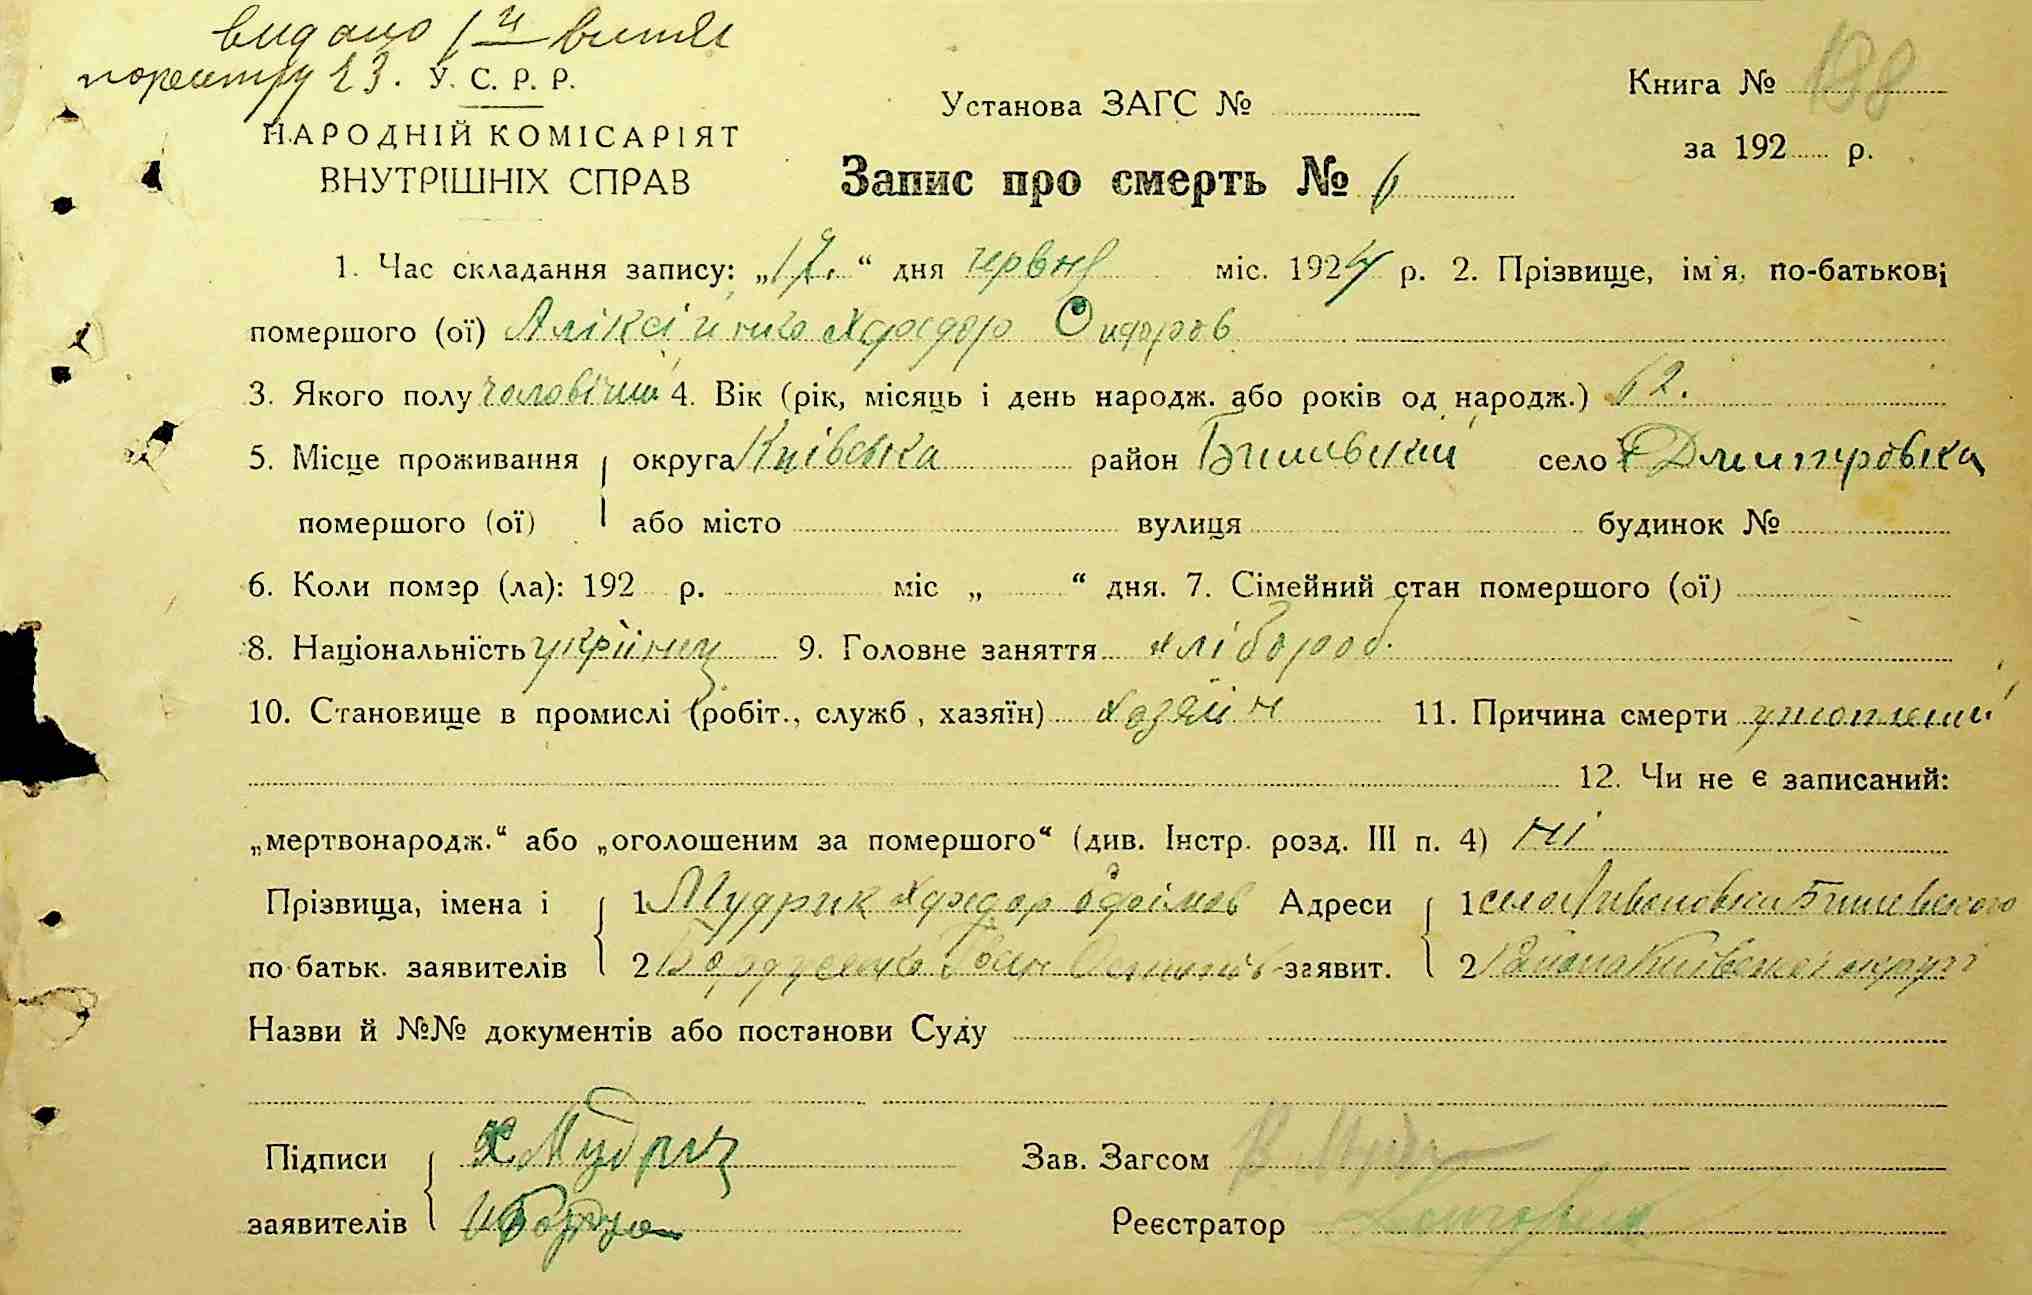 видано 1й витяг
по реєстру 23. У. С. Р. Р.
НАРОДНІЙ КОМІСАРІЯТ
ВНУТРІШНІХ СПРАВ
Установа ЗАГС №
Книга № 198
за 192 р.
Запис про смерть № 6
1. Час складання запису: „17.“ дня червня міс. 1924 р. 2. Прізвище, ім'я, по-батькові
помершого (ої) Аліксійнко Хфедор Сидоров
3. Якого полу чоловічий 4. Вік (рік, місяць і день народж. або років од народж.) 62.
5. Місце проживання округа Київська район Бишевский село Дмитровка
помершого (ої) або місто вулиця будинок №
6. Коли помер (ла): 192 р. міс „ “ дня. 7. Сімейний стан помершого (ої)
8. Національність 9. Головне заняття хлібороб.
10. Становище в промислі (робіт., служб, хазяїн) хозяїн 11. Причина смерти утоплений
12. Чи не є записаний:
„мертвонародж.“ або „оголошеним за помершого“ (див. Інстр. розд. III п. 4) ні
Прізвища, імена і 1 Мудрик Хфедор Єфімов Адреси 1 село Бишевского
по батьк. заявителів 2 Іван заявит. 2 Района Київскої округі
Назви й №№ документів або постанови Суду
Підписи Х Мудрик Зав. Загсом
заявителів Реєстратор